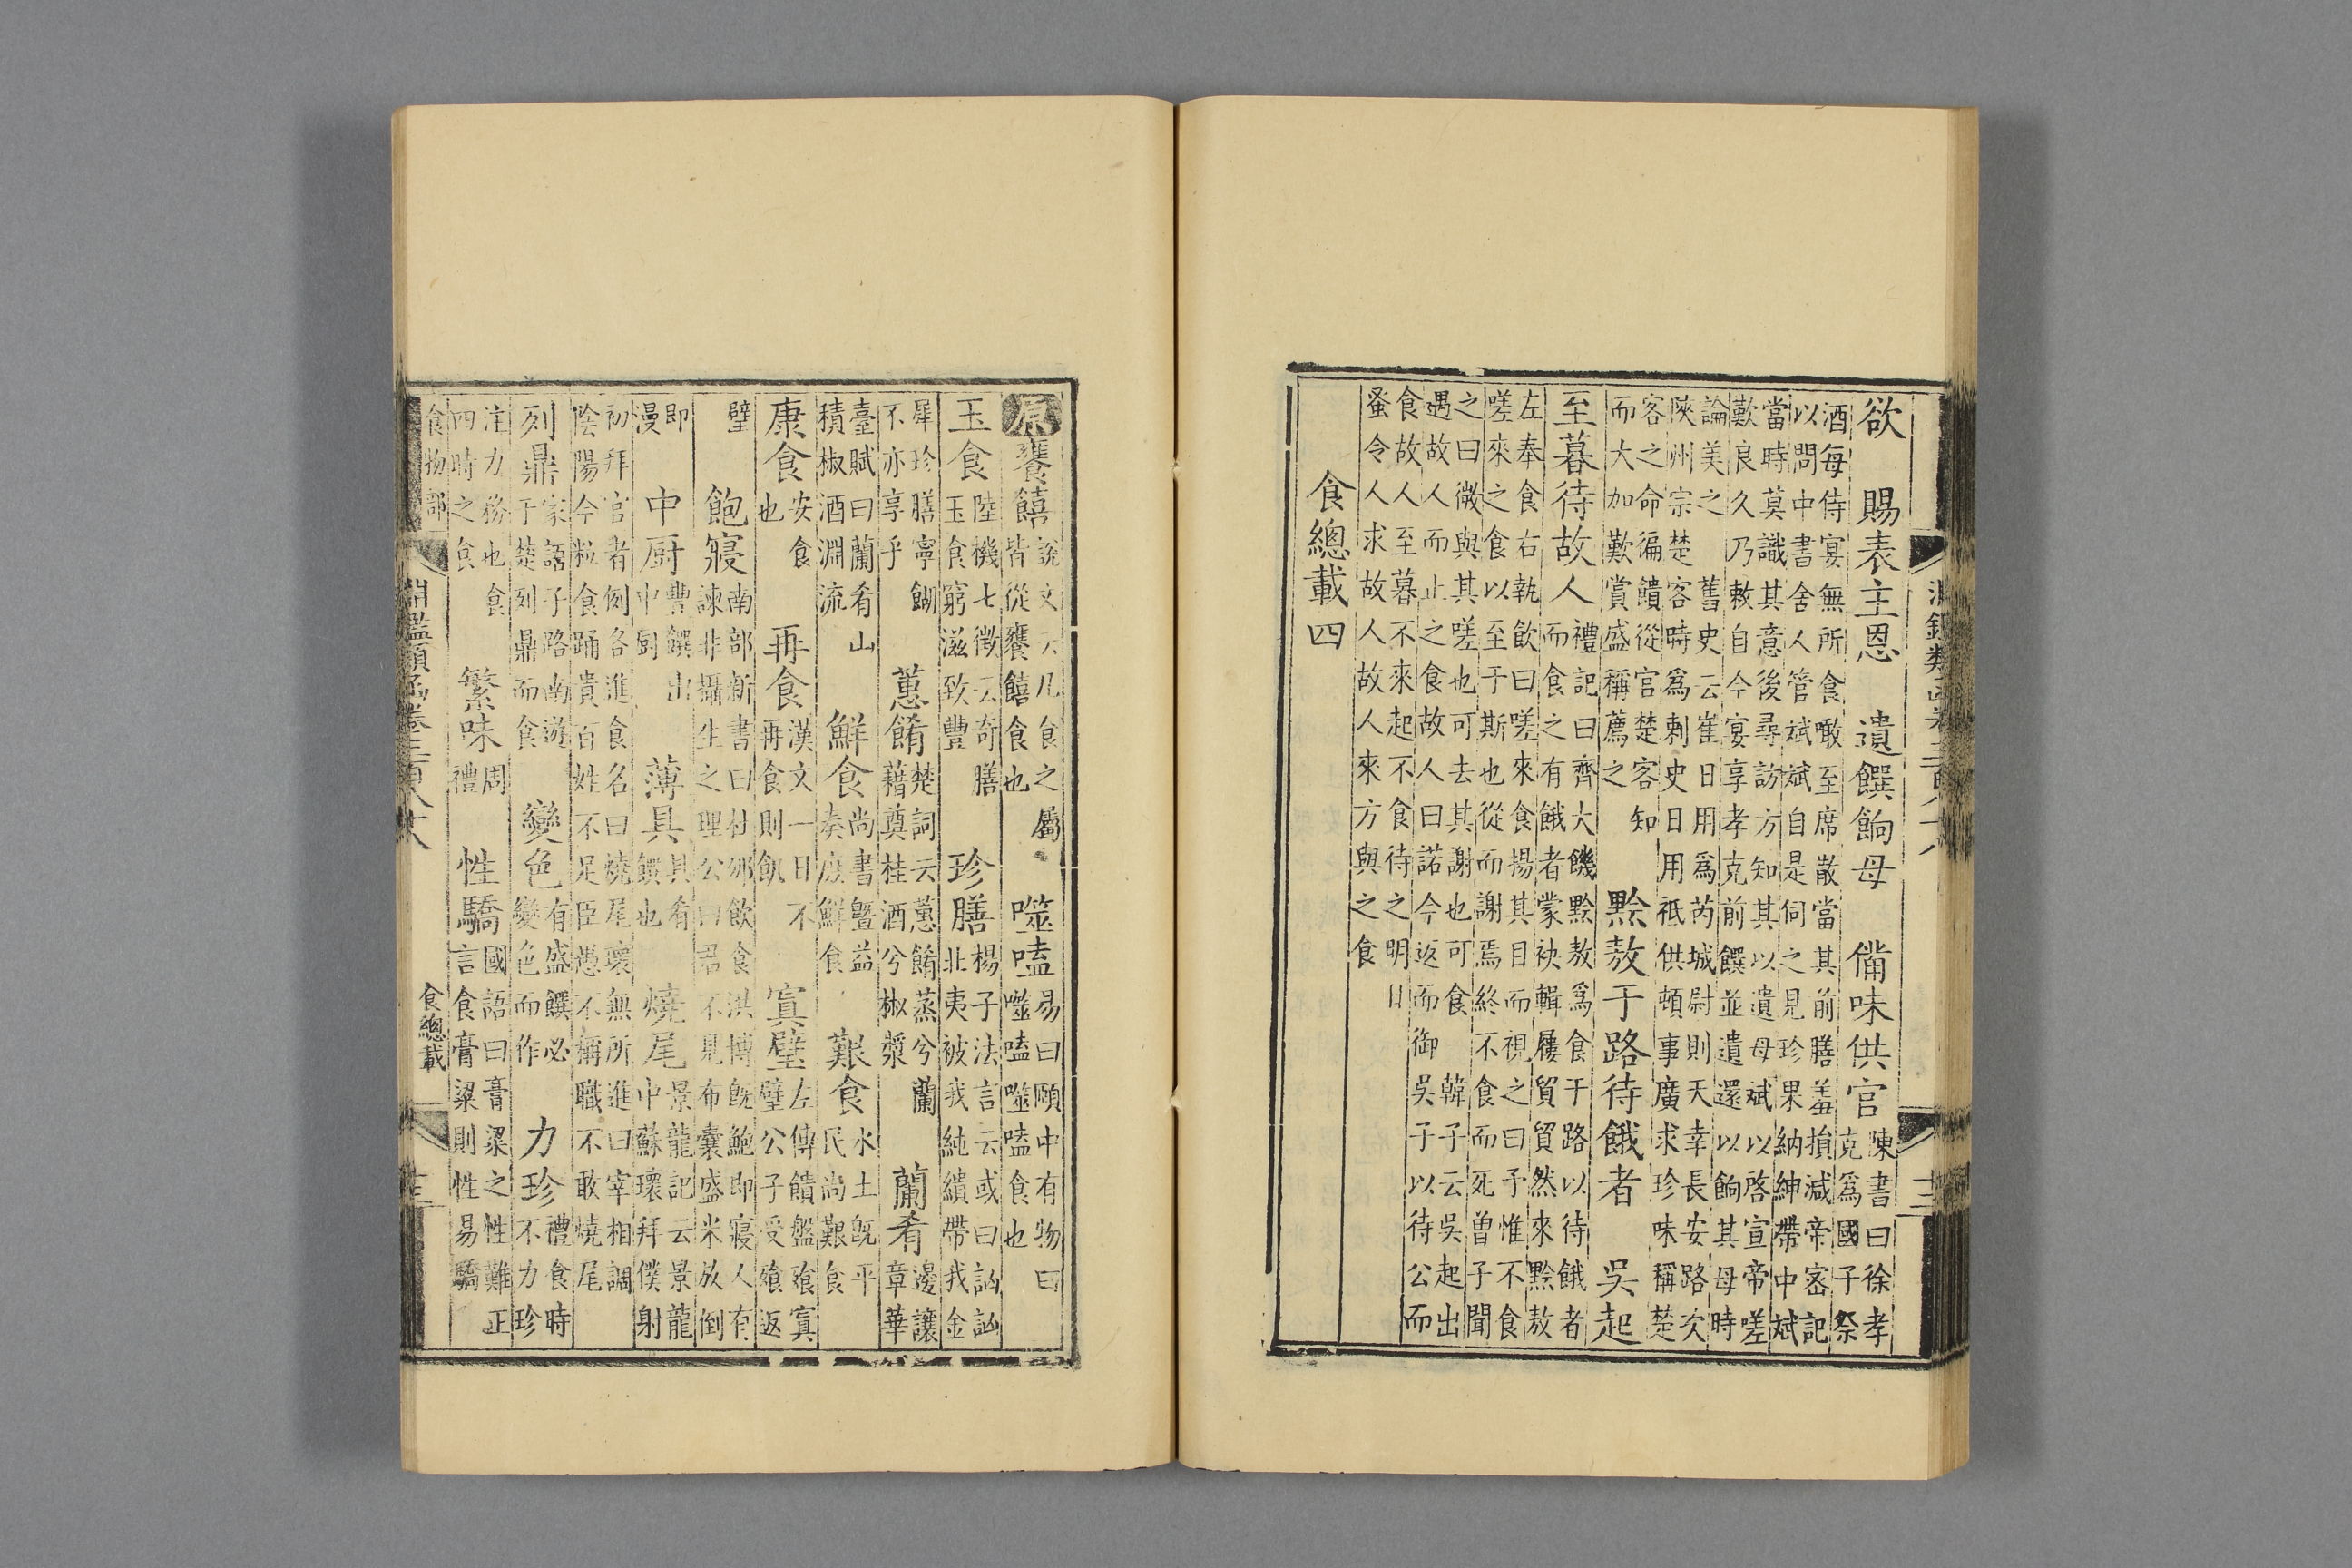 欲　賜表主恩　遺饌餉母　備味供官
陳書曰徐孝
克爲國子祭
酒每侍宴無所食噉至席散當其前膳羞損減帝密記
以問中書舍人管斌斌自是伺之見珍果納紳帶中斌
當時莫識其意後尋訪方知其以遺母斌以啓宣帝嗟
歎良久乃敕自今宴享孝克前饌並遺還以餉其母時
論美之　舊史云崔日用爲芮城尉則天幸長安路次
陝州宗楚客時爲刺史日用祗供頓事廣求珍味稱楚
客之命徧饋從官楚客知
而大加歎賞盛稱薦之
黔敖于路待餓者　吳起
至暮待故人
禮記曰齊大饑黔敖爲食于路以待餓者
而食之有餓者蒙袂輯屨貿貿然來黔敖
左奉食右執飲曰嗟來食揚其目而視之曰予惟不食
嗟來之食以至于斯也從而謝焉終不食而死曾子聞
之曰微與其嗟也可去其謝也可食　韓子云吳起出
遇故人而止之食故人曰諾今返而御吳于以待公而
食故人至暮不來起不食待之明日
蚤令人求故人故人來方與之食
食總載四
原饔饎
說文云凡食之屬
皆從饔饎食也
噬嗑
易曰頤中有物曰
噬嗑噬嗑食也
玉食
陸機七徵云奇膳
玉食窮滋致豐
珍膳
楊子法言云或曰訩訩
北夷被我純繢帶我金
犀珍膳寧餬
不亦享乎
蕙餚
楚詞云蕙餚蒸兮蘭
藉奠桂酒兮椒漿
蘭肴
邊讓
章華
臺賦曰蘭肴山
積椒酒淵流
鮮食
尚書曁益
奏庶鮮食
艱食
水土既平
民尚艱食
康食
安食
也
再食
漢文一日不
再食則飢
寘璧
左傳饋盤飱寘
璧公子受飱返
璧
飽寢
南部新書曰杜邠飲食洪博既飽即寢人有
諫非攝生之理公曰君不見布囊盛米放倒
即
漫
中厨
豐饌出
中厨
薄具
具肴
饌也
燒尾
景龍記云景龍
中蘇瓌拜僕射
初拜官者例各進食名曰燒尾瓌無所進曰宰相調
陰陽今粒食踊貴百姓不足臣愚不稱職不敢燒尾
列鼎
家語子路南遊
于楚列鼎而食
變色
有盛饌必
變色而作
力珍
禮食時
不力珍
注力務也食
四時之食
繁味
周
禮
性驕
國語曰膏粱之性難正
言食膏粱則性易驕
食物部
食總載